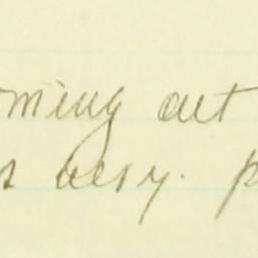 oming out
s very. p